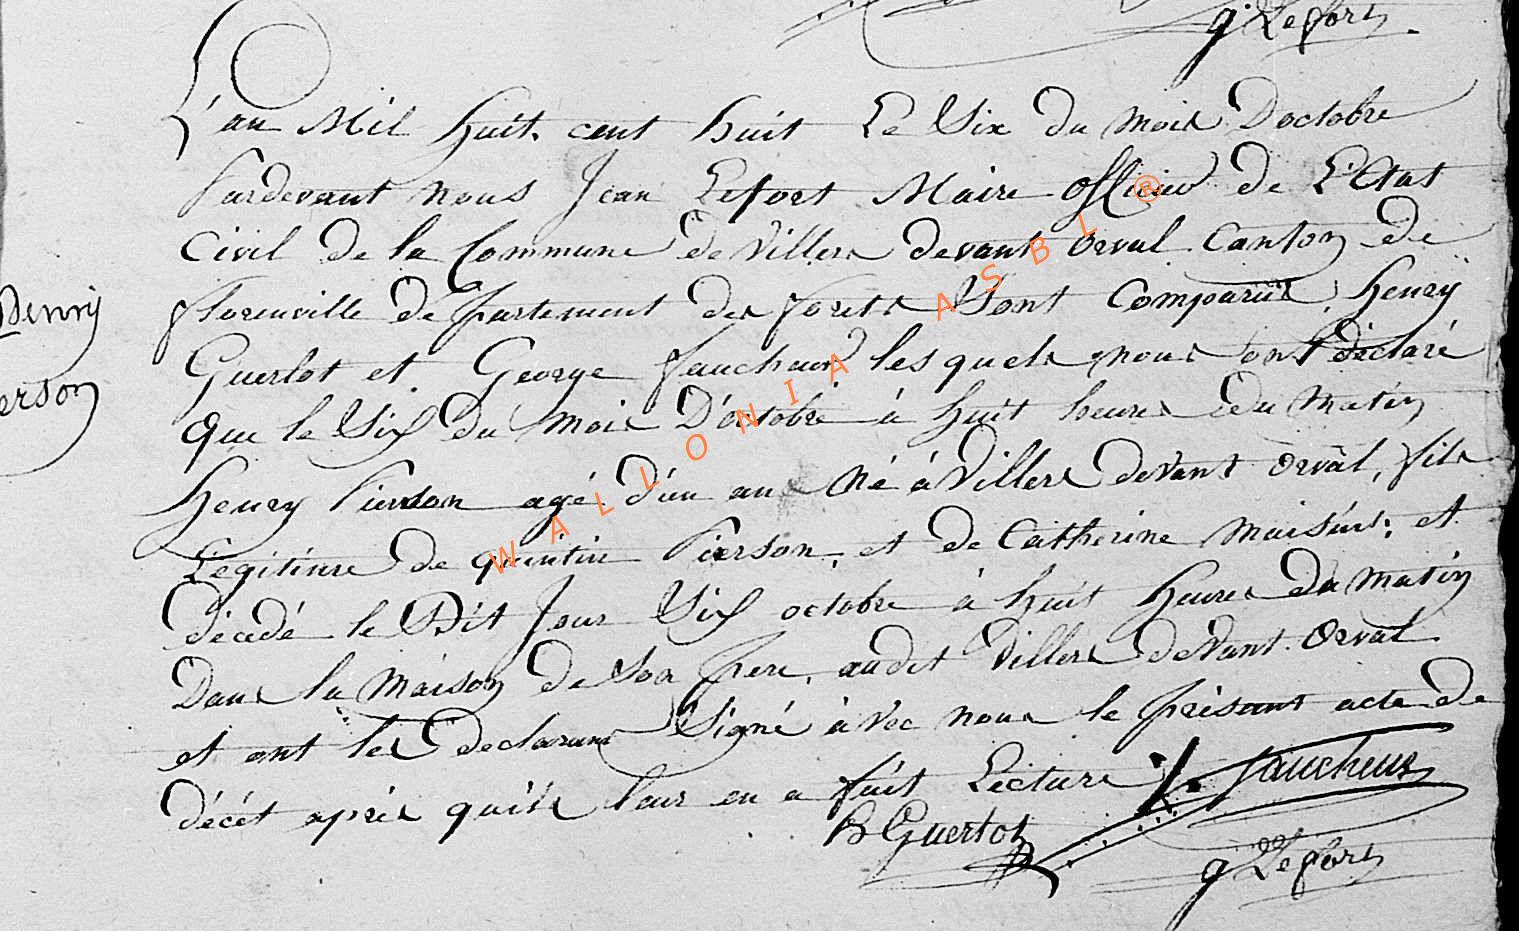 g. Lefort
L'an Mil huit cent huit Le Six du mois Doctobre
Pardevant nous Jean Lefort Maire officier de L'Etat
Civil de la Commune de Villers devant orval Canton de
florenville département des forets Sont Comparus Henry
Guerlot et George faucheux les quels nous ont déclaré
Henry
Pierson
que le Six du mois D'octobre à huit heures du matin
Henry Pierson agé d'un an né à Villers devant orval, fils
Légitime de quintin Pierson, et de Catherine et
décédé le Dit Jour Six octobre à huit heures du matin
Dans la Maison de Son Pere, audit Villers devant orval
et ont les declarans Signé avec nous le présant acte de
décét après qu'ils leur en a fait Lecture faucheux
h Guerlot
g Lefort
WALLONIA ASBL ®